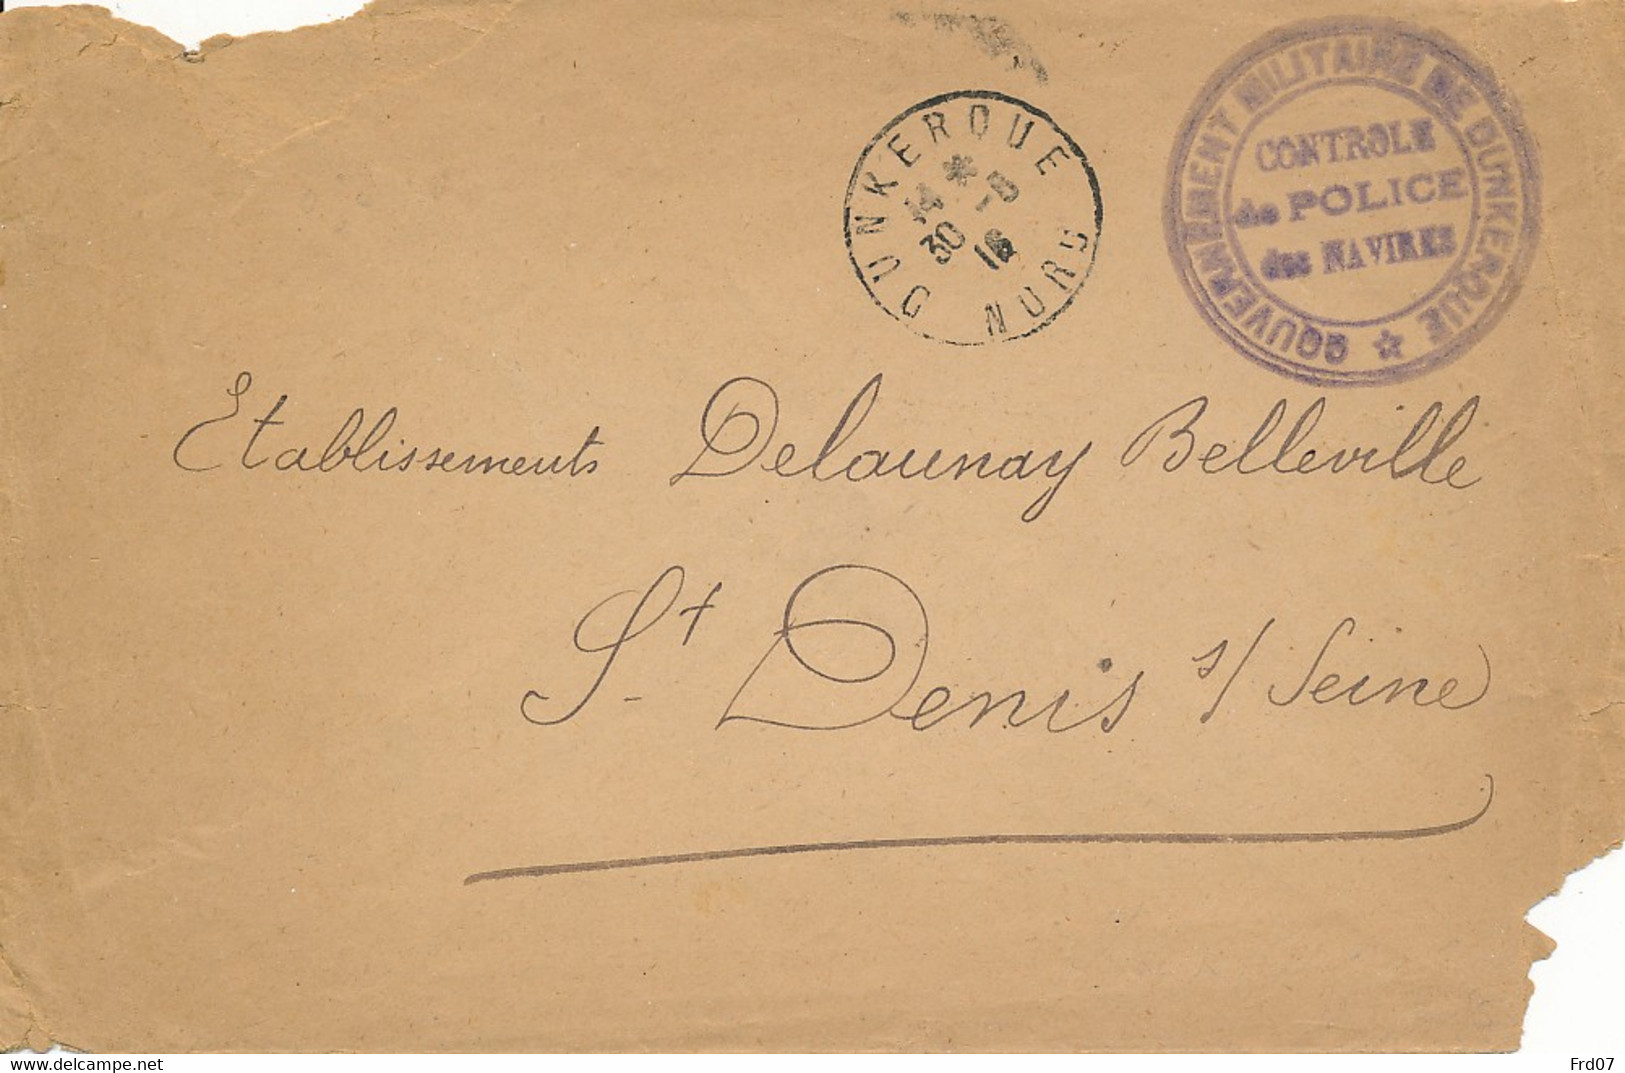 DUNKERQUE
14 * -8
30 16
NORD
GOUVERNEMENT MILITAIRE DE DUNKERQUE ☆
CONTROLE
de POLICE
des NAVIRES
Etablissements Delaunay Belleville
St Denis s/ Seine
www.delcampe.net
Frd07